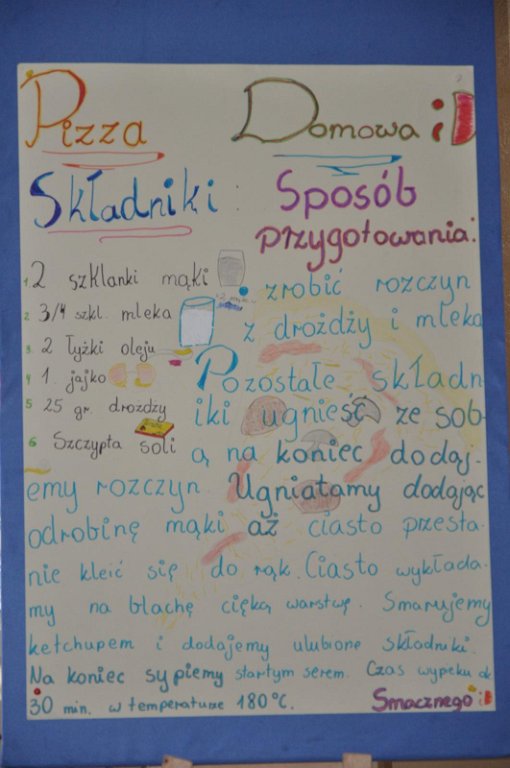 Pizza Domowa :D
Składniki : Sposób
przygotowania:
1 2 szklanki mąki
2 3/4 szkl. mleka
3. 2 łyżki oleju
4 1. jajko
5 25 gr. drożdży
6 Szczypta soli
zrobić rozczyn
z drożdży i mleka
Pozostałe składn
iki ugnieść ze sob-
ą na koniec dodaj-
emy rozczyn. Ugniatamy dodając
odrobinę mąki aż ciasto przesta-
nie kleić się do rąk. Ciasto wykłada-
my na blachę cięką warstwę. Smarujemy
ketchupem i dodajemy ulubione składniki.
Na koniec sypiemy startym serem. Czas wypieku ok
30 min. w temperaturze 180°C. Smacznego :D